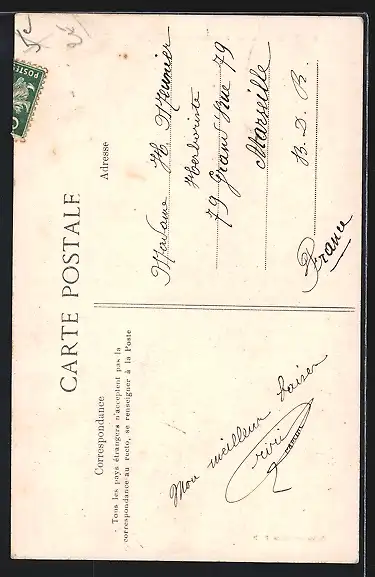 CARTE POSTALE
Correspondance
Tous les pays étrangers n'acceptent pas la
correspondance au recto, se renseigner à la Poste
Mon meilleur baiser
riri
Adresse
Madame H. Meunier
Herboriste
79 Grand' Rue 79
Marseille
B. D. R.
France
POSTES